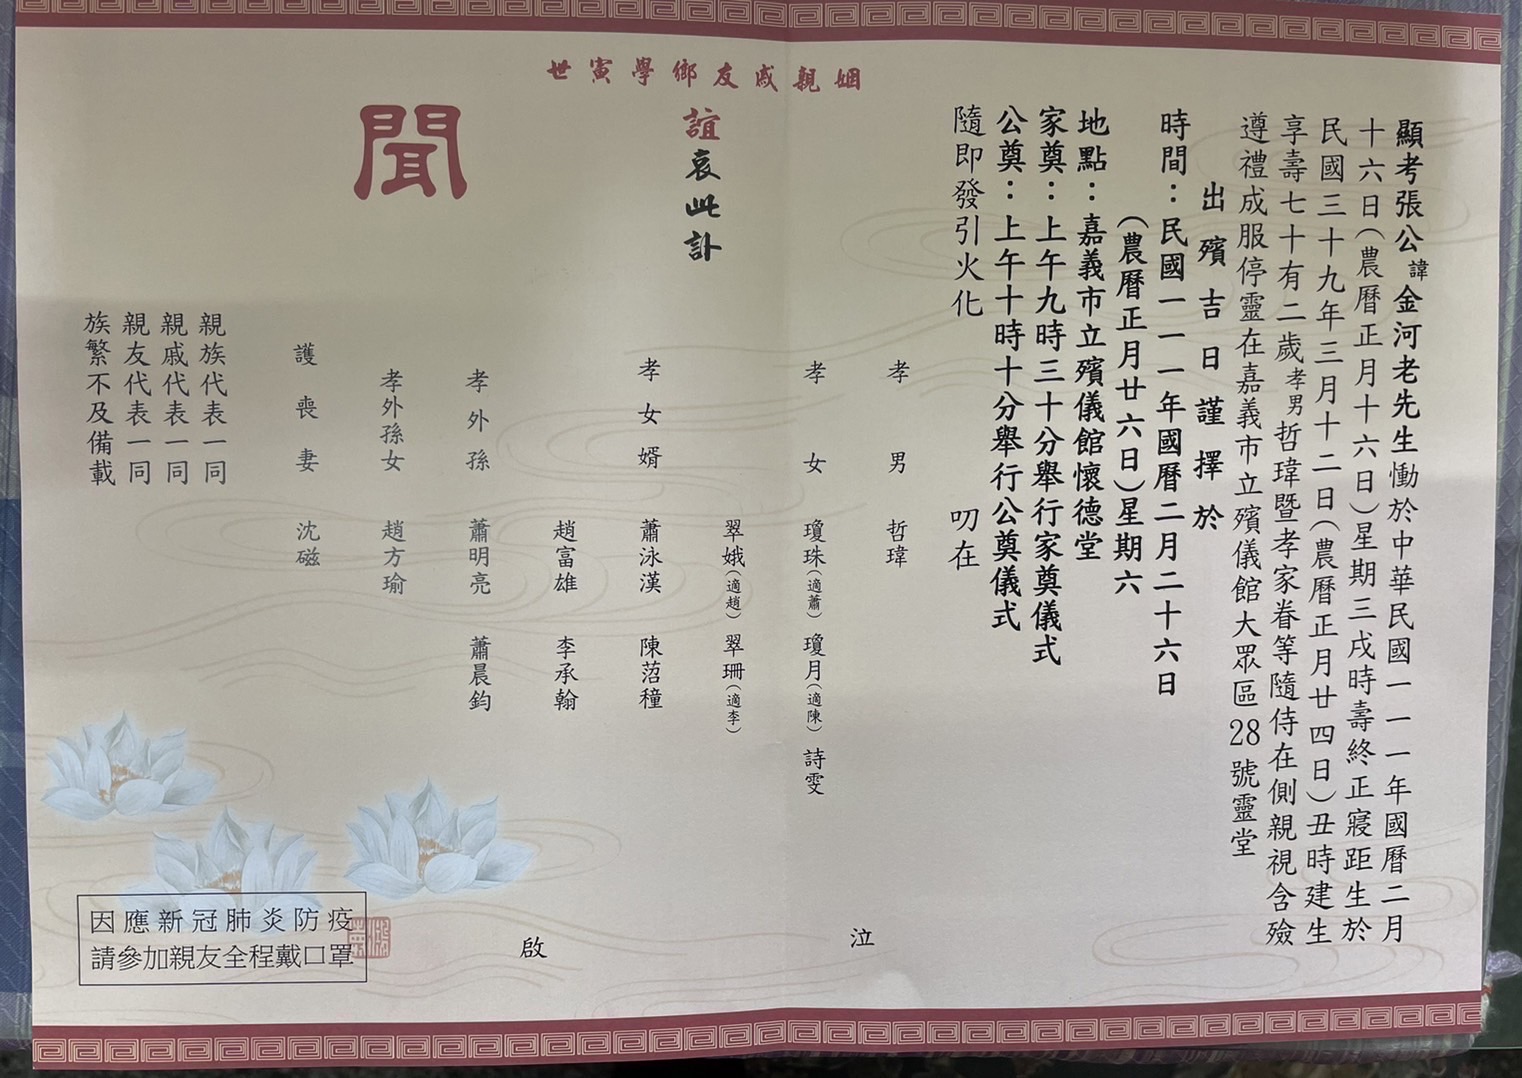 顯考張公諱金河老先生慟於中華民國一一一年國曆二月
十六日(農曆正月十六日)星期三戌時壽終正寢距生於
民國三十九年三月十二日(農曆正月廿四日)丑時建生
享壽七十有二歲孝男哲瑋暨孝家眷等隨侍在側親視含殮
遵禮成服停靈在嘉義市立殯儀館大眾區28號靈堂
出殯吉日謹擇於
時間：民國一一一年國曆二月二十六日
(農曆正月廿六日)星期六
地點：嘉義市立殯儀館懷德堂
家奠：上午九時三十分舉行家奠儀式
公奠：上午十時十分舉行公奠儀式
隨即發引火化 叨在
姻親戚友鄉學寅世
誼哀此訃
聞
孝男 哲瑋
泣
孝女 瓊珠(適蕭) 瓊月(適陳) 詩雯
翠娥(適趙) 翠珊(適李)
孝女婿 蕭泳漢 陳萡穜
趙富雄 李承翰
啟
孝外孫 蕭明亮 蕭晨鈞
孝外孫女 趙方瑜
護喪妻 沈磁
親族代表一同
親戚代表一同
親友代表一同
族繁不及備載
因應新冠肺炎防疫
請參加親友全程戴口罩